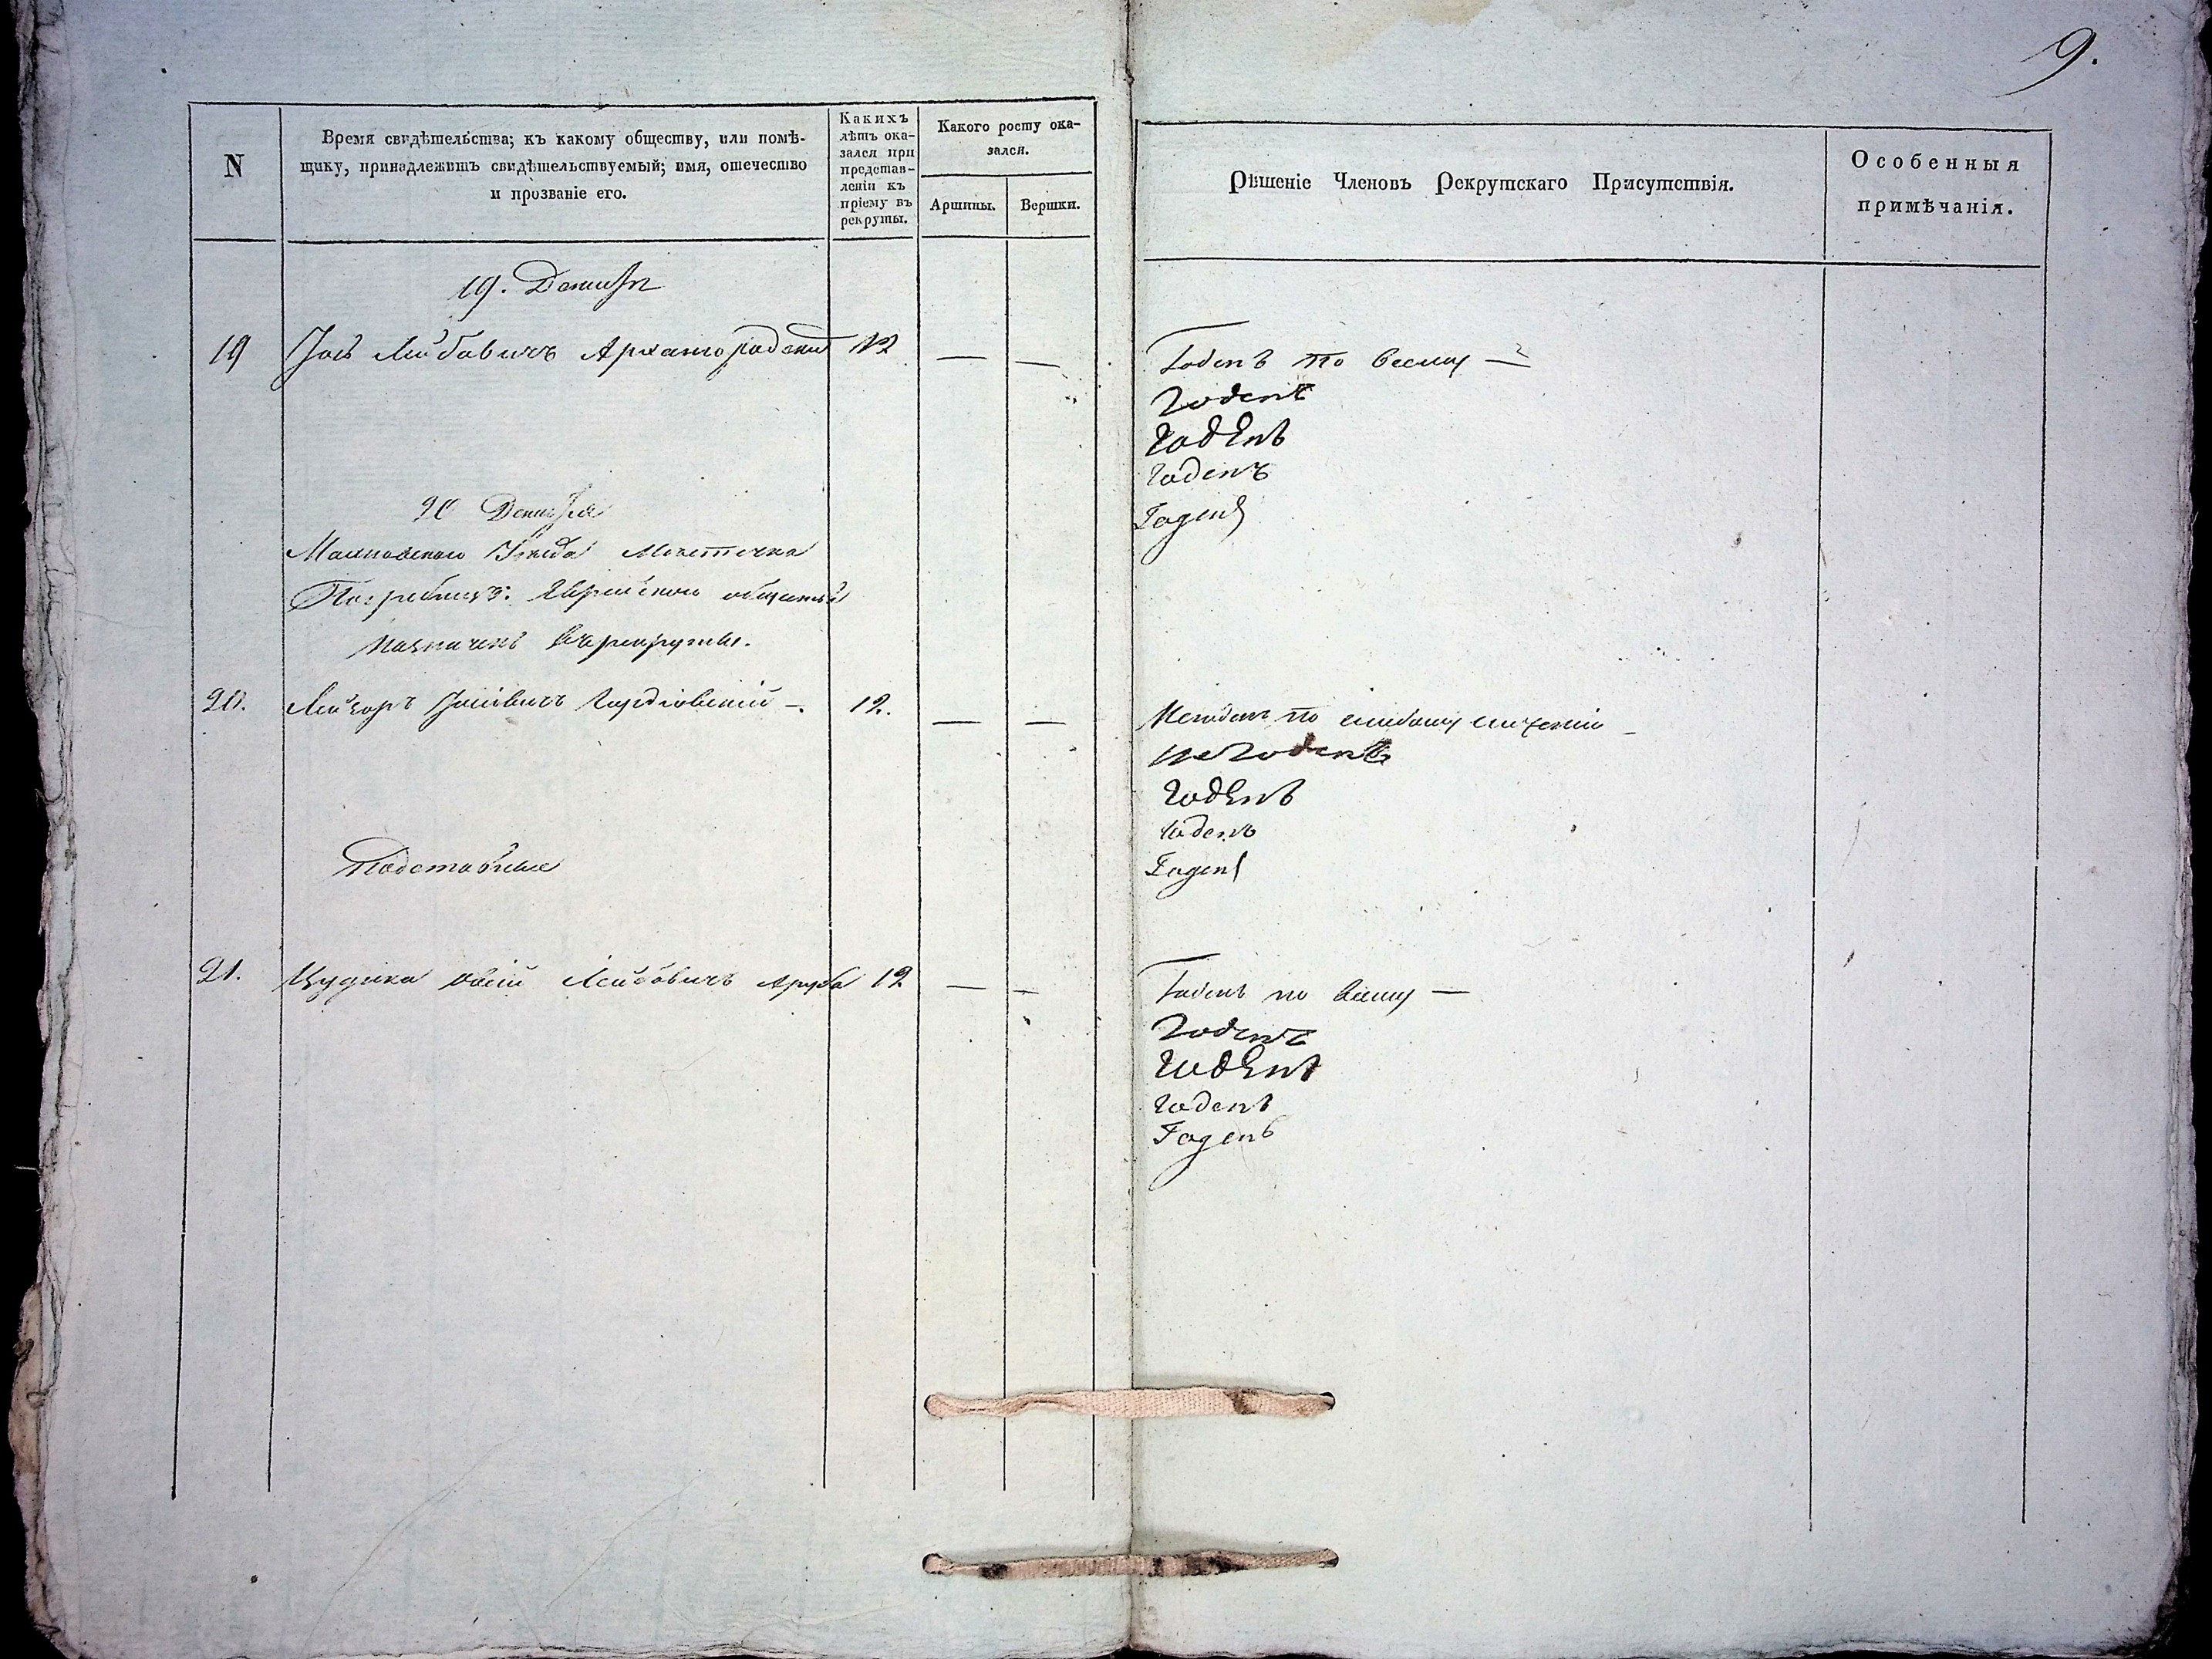 9.
N
Время свидѣтельства; къ какому обществу, или помѣ-
щику, принадлежитъ свидѣтельствуемый; имя, отечество
и прозваніе его.
Какихъ
лѣтъ ока-
зался при
представ-
леніи къ
пріему въ
рекруты.
Какого росту ока-
зался.
Аршины.
Вершки.
Рѣшеніе Членовъ Рекрутскаго Присутствія.
Особенныя
примѣчанія.
19. Декабря
19 Іось Лейбовичъ 12 — — Годенъ по всему —
Годенъ
Годенъ
Годенъ
Годенъ
20 Декабря
Махновскаго Уѣзда Мѣстечка
Погребищъ Еврейскаго общества
назначенъ въ рекруты.
20. Лейзоръ 12. — — Негоденъ по слабому сложенію —
Негоденъ
Годенъ
Годенъ
Годенъ
Подставные
21. Овсій Лейбовичъ 12 — — Годенъ по всему —
Годенъ
Годенъ
Годенъ
Годенъ